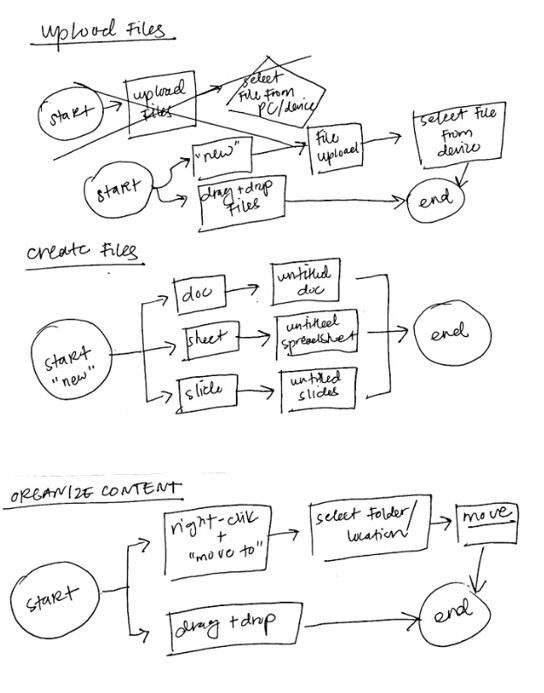 upload files
start
upload
files
select
file from
PC/device
start
"new"
file
upload
select file
from
device
drag + drop
files
end
create files
start
"new"
doc
untitled
doc
sheet
untitled
spreadsheet
slide
untitled
slides
end
ORGANIZE CONTENT
start
right-click
+
"move to"
select folder/
location
move
drag + drop
end